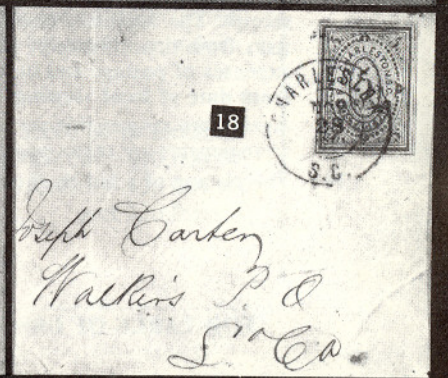 CHARLESTON S.C.
CHARLESTON
S.C.
18
Joseph Carter
Walkers P. O
So Ca